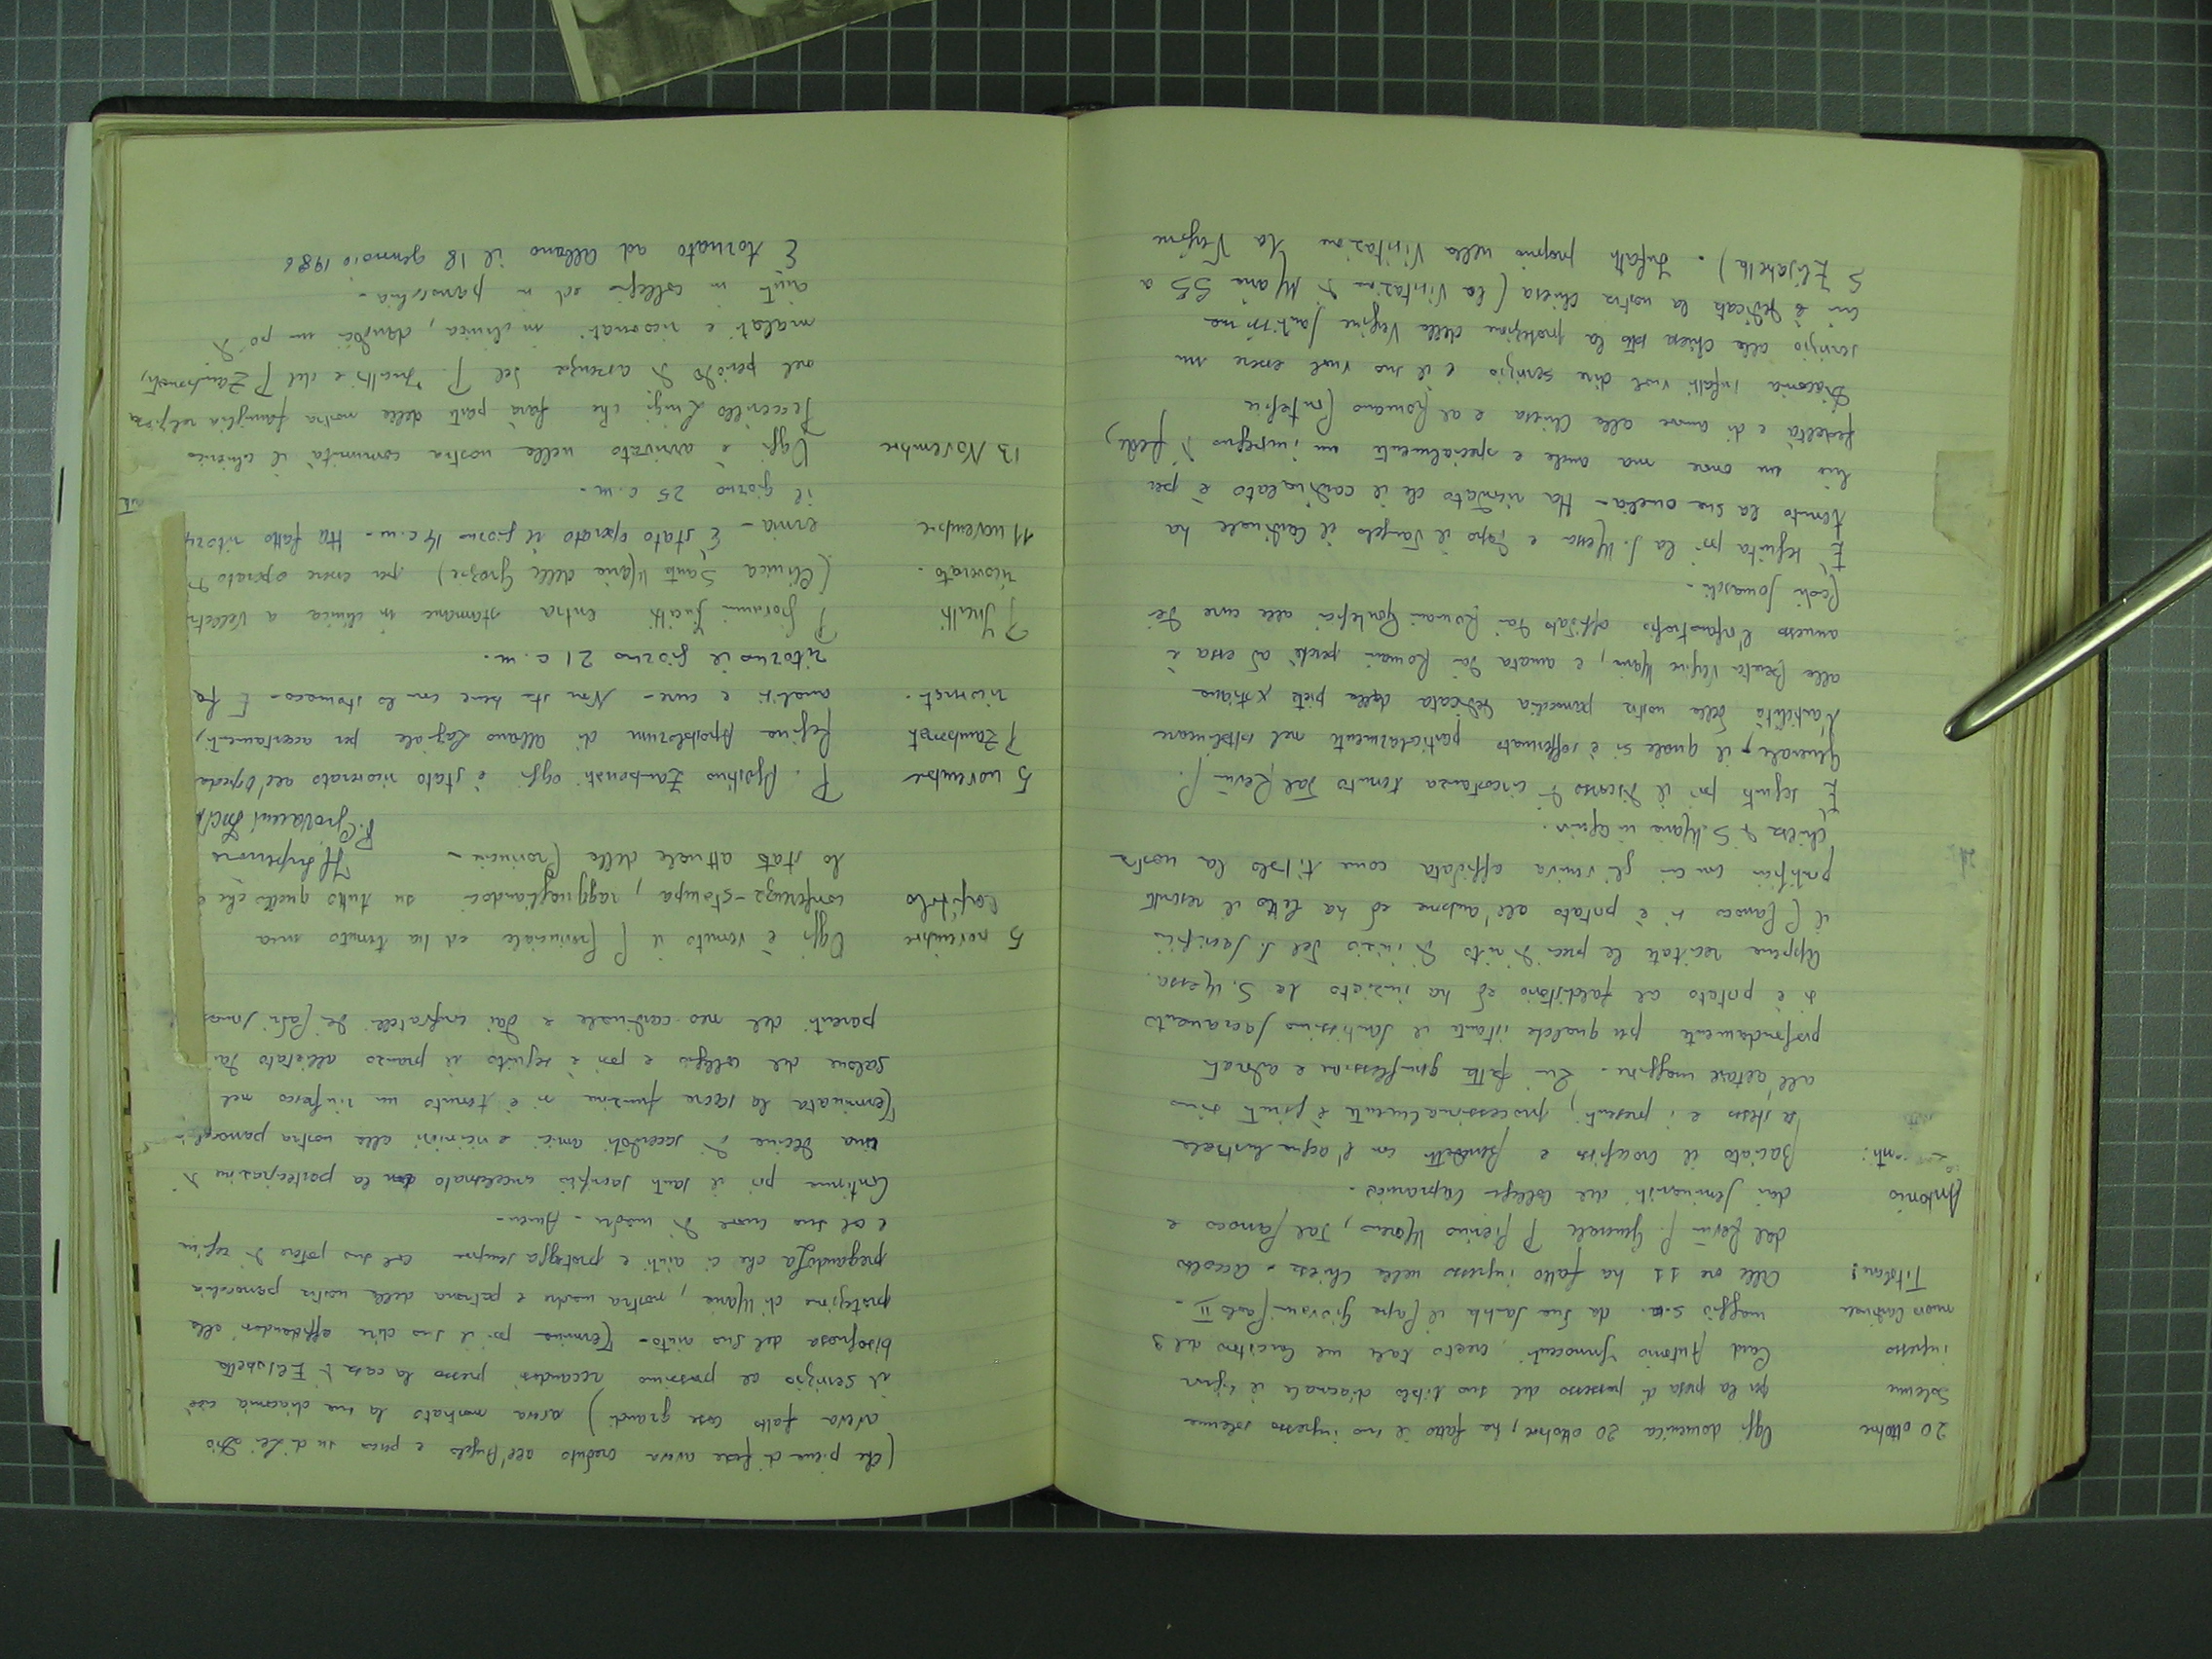 20 ottobre Oggi domenica 20 ottobre, ha fatto il suo ingresso solenne
solenne per la presa di possesso del suo titolo diaconale il signor
ingresso Card Antonio Innocenti, creato tale nel Concistoro del 9
nuovo Cardinale maggio s.a. da Sua Santità il Papa Giovanni Paolo II -
Titolare: Alle ore 11 ha fatto ingresso nella chiesa - accolto
dal Rev.mo P. Generale P Pierino Moreno, dal Parroco e
Antonio dai seminaristi del Collegio Capranica.
Baciato il Crocifisso e benedetti con l'acqua lustrale
lo stesso e i presenti, processionalmente è giunto sino
all'altare maggiore. Qui fatta genuflessione e adorato
profondamente per qualche istante il Santissimo Sacramento
si è portato al faldistorio ed ha iniziato la S. Messa.
Appena recitate le preci di rito di inizio del S. Sacrificio
il Parroco si è portato all'ambone ed ha letto il rescritto
pontificio con cui gli veniva affidata come titolo la nostra
Chiesa di S. Maria in Aquiro.
È seguito poi il discorso di circostanza tenuto dal Rev.mo P.
Generale, il quale si è soffermato particolarmente nel sottolineare
l'antichità della nostra parrocchia dedicata dalla pietà xstiana
alla Beata Vergine Maria, e amata dai Romani perché ad essa è
annesso l'orfanotrofio affidato dai Romani Pontefici alle cure dei
Padri Somaschi.
È seguita poi la S. Messa e dopo il Vangelo il Cardinale ha
tenuto la sua omelia - Ha ricordato che il cardinalato è per
lui un onore ma anche e specialmente un impegno di fede,
fedeltà e di amore alla Chiesa e al Romano Pontefice
Diaconia infatti vuol dire servizio e il suo vuol essere un
servizio alla Chiesa sotto la protezione della Vergine Santissima
cui è dedicata la nostra chiesa (la Visitazione di Maria SS a
S Elisabetta). Infatti proprio nella Visitazione la Vergine
(che piena di fede aveva creduto all'Angelo e perciò su di Lei Dio
aveva fatto cose grandi) aveva mostrato la sua diaconia cioè
il servizio al prossimo recandosi presso la casa di Elisabetta
bisognosa del suo aiuto - Termina poi il suo dire affidandosi alla
protezione di Maria, nostra madre e patrona della nostra parrocchia
pregandola che ci aiuti e protegga sempre col suo potere di regina
e col suo cuore di madre - Amen -
Continua poi il santo sacrificio concelebrato con la partecipazione di
una decina di sacerdoti amici e vicini alla nostra
Terminata la sacra funzione si è tenuto un rinfresco nel
salone del collegio e poi è seguito il pranzo allietato dai
parenti del neo cardinale e dai confratelli
5 novembre Oggi è venuto il P Provinciale ed ha tenuto una
Capitolo conferenza-stampa, ragguagliandoci su tutto quello che è
lo stato attuale della Provincia - Il superiore
P. Giovanni
5 novembre P. Agostino Zambonati oggi è stato ricoverato all'Ospedale
P Zambonati Regina Apostolorum di Albano Laziale per accertamenti,
ricoverato. analisi e cure - Non sta bene con lo stomaco - E fa
ritorno il giorno 21 c.m.
P Jucitti P Giovanni Jucitti entra stamane in clinica a Velletri
ricoverato. (Clinica Santa Maria delle Grazie) per essere operato di
11 novembre ernia - È stato operato il giorno 14 c.m. - Ha fatto
il giorno 25 c.m. -
13 Novembre Oggi è arrivato nella nostra comunità il chierico
Luigi che farà parte della nostra famiglia religiosa
nel periodo di assenza del P. Jucitti e del P Zambonati,
malati e ricoverati in clinica, dandoci un po' di
aiuto in collegio ed in parrocchia -
È tornato ad Albano il 18 gennaio 1986